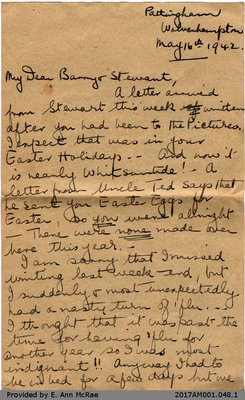 Pattingham
Wolverhampton
May 16th, 1942.
My Dear Barry & Stewart,
A letter arrived
from Stewart this week written
after you had been to the Pictures.
I expect that was in your
Easter Holidays -- And now it
is nearly Whitsuntide! - A
letter from Uncle Ted says that
he sent you Easter Eggs for
Easter. So you were allright
- There were none made over
here this year.
I am sorry that I missed
writing last week-end, but
I suddenly & most unexpectedly
had a nasty turn of flu...
I thought that it was past the
time for having 'flu for
another year so I was most
indignant!! Anyway I had to
be in bed for a few days but we
Provided by E. Ann McRae
2017AM001.048.1